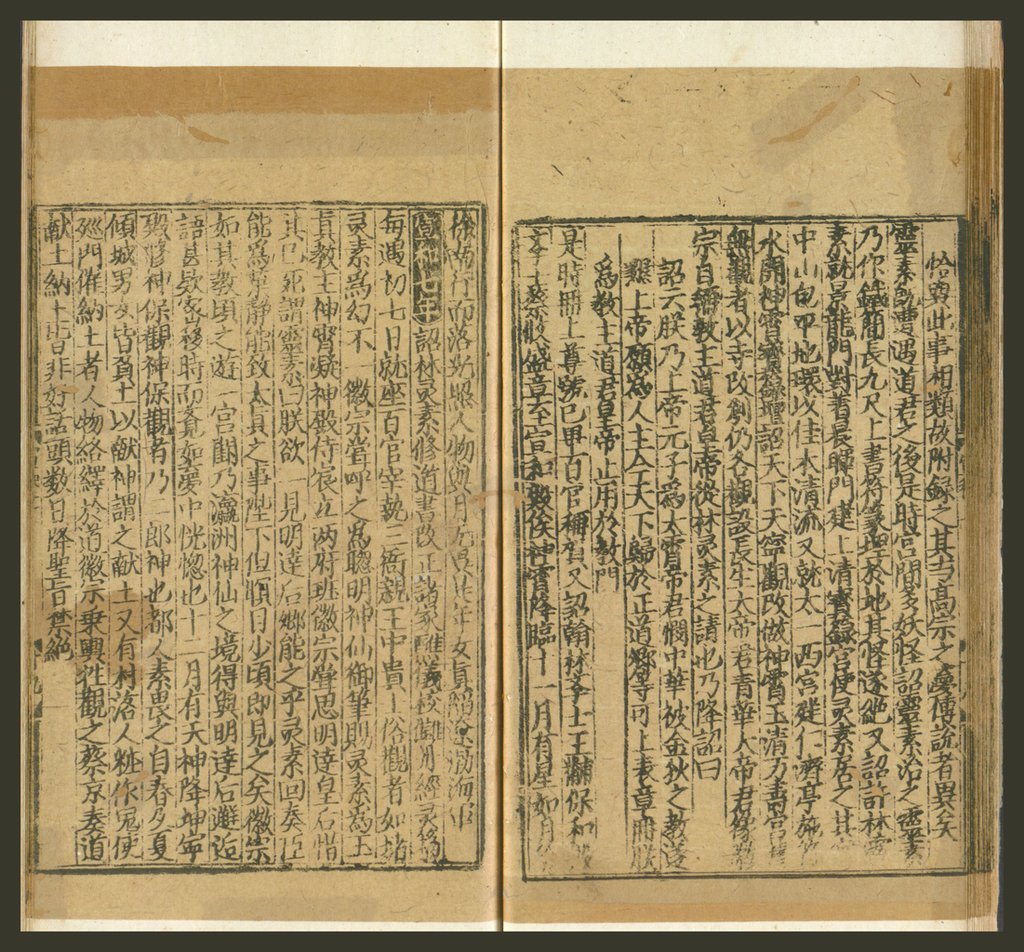 恰與此事相類故附録之其与高宗之夢傳説者異矣
靈素就遭遇道君之後是時宫間多妖怪詔靈素治之靈素
乃作鐵簡長九尺上書符篆埋於地其怪遂絶又詔許林靈
素就景龍門對着晨暉門建上清寳籙宫使灵素居之其
中山包平地環以佳木清流又就太一西宫建仁濟亭施
水開神霄寳籙壇詔天下天寧觀改做神霄玉清万壽宫
無觀者以寺改創仍各概設長生太帝君青華大帝君像
宗自稱教主道君皇帝從林灵素之請也乃降詔曰
詔云朕乃上帝元子爲太霄帝君憫中華被金狄之教遂
懇上帝願爲人主令天下歸於正道卿等可上表章冊朕
爲教主道君皇帝止用於教門
是時冊上尊號已畢百官稱賀又詔翰林李士王黼保和
李士蔡攸盛章至宣和殿俟神霄降臨十一月有星如月
徐南行而落光照人物與月无異是年女真陷途渤海軍
宣和七年詔林灵素修道書改正諸家醮儀校讎丹經灵篇
每遇初七日就座百官宰執三衙親王中貴士俗觀者如堵
灵素爲幻不一徽宗嘗呼之爲聰明神仙御筆賜灵素為玉
真教主神霄凝神殿侍宸立两府班徽宗聖思明達皇后惜
其已死謂靈素曰朕欲一見明達后卿能之乎灵素回奏臣
能爲葉靜能致太真之事陛下但順日少頃即見之矣徽宗
如其教頃之遊一宫闕乃瀛洲神仙之境得與明達后邂逅
語甚欵家移時而覚如夢中恍惚也十二月有天神降坤寧
殿修神保觀神保觀者乃二郎神也都人素畏之自春及夏
傾城男女皆負土以献神謂之献土又有村落人粧作鬼使
廵門催納土者人物絡繹於道徽宗乗輿徃觀之蔡京奏道
献土納土皆非好話頭数日降聖旨禁絶